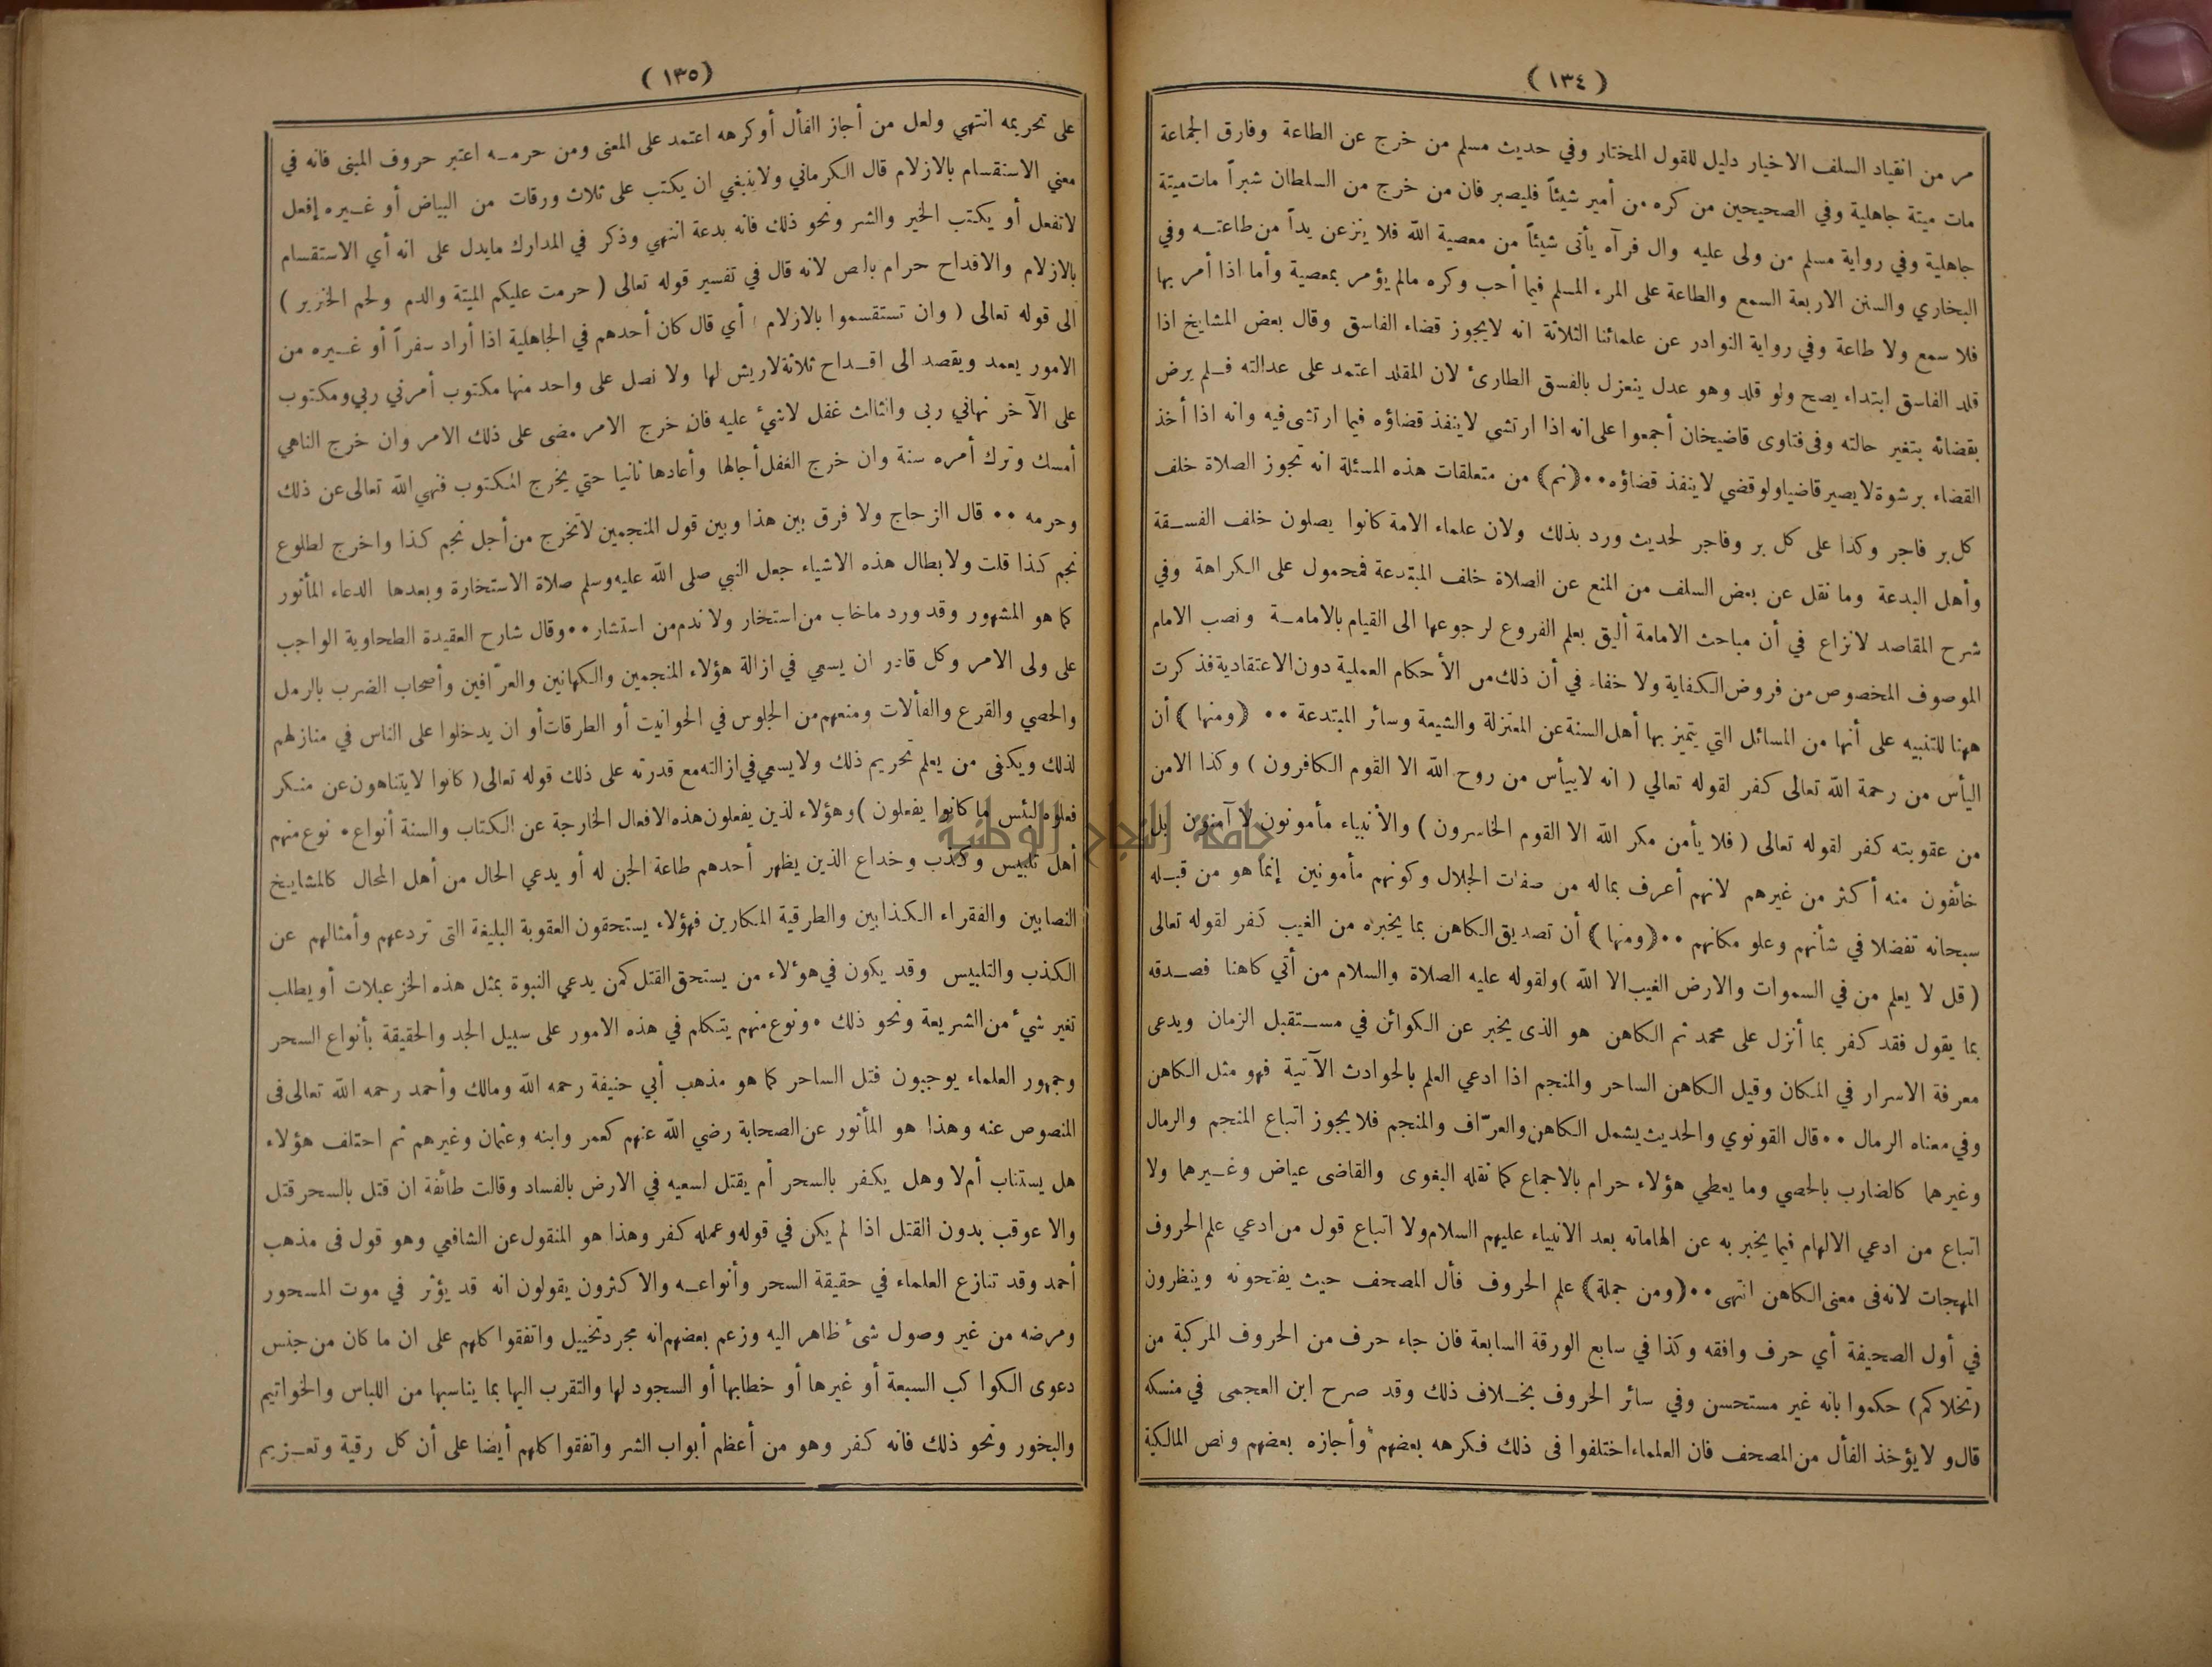 ( ١٣٤ )
مر من انقياد السلف الاخيار دليل للقول المختار وفي حديث مسلم من خرج عن الطاعة وفارق الجماعة
مات ميتة جاهلية وفي الصحيحين من كره من أمير شيئاً فليصبر فان من خرج من السلطان شبراً مات ميتة
جاهلية وفي رواية مسلم من ولى عليه وال فرآه يأتى شيئاً من معصية الله فلا ينزعن يداً من طاعتـه وفي
البخاري والسنن الاربعة السمع والطاعة على المرء المسلم فيما أحب وكره مالم يؤمر بمعصية وأما اذا أمر بها
فلا سمع ولا طاعة وفي رواية النوادر عن علمائنا الثلاثة انه لايجوز قضاء الفاسق وقال بعض المشايخ اذا
قلد الفاسق ابتداء يصح ولو قلد وهو عدل ينعزل بالفسق الطارئ لان المقلد اعتمد على عدالته فـلم يرض
بقضائه بتغير حالته وفى فتاوى قاضيخان أجمعوا على انه اذا ارتشي لاينفذ قضاؤه فيما ارتشى فيه وانه اذا أخذ
القضاء برشوة لايصير قاضيا ولو قضي لاينفذ قضاؤه ٠٠ (ثم) من متعلقات هذه المسئلة انه تجوز الصلاة خلف
كل بر فاجر وكذا على كل بر وفاجر لحديث ورد بذلك ولان علماء الامة كانوا يصلون خلف الفسـقة
وأهل البدعة وما نقل عن بعض السلف من المنع عن الصلاة خلف المبتدعة فمحمول على الكراهة وفي
شرح المقاصد لانزاع في أن مباحث الامامة أليق بعلم الفروع لرجوعها الى القيام بالامامـة ونصب الامام
الموصوف المخصوص من فروض الكفاية ولا خفاء في أن ذلك من الأحكام العملية دون الاعتقادية فذكرت
ههنا للتنبيه على أنها من المسائل التي يتميز بها أهل السنة عن المعتزلة والشيعة وسائر المبتدعة ٠٠ (ومنها) أن
اليأس من رحمة الله تعالى كفر لقوله تعالي ( انه لاييأس من روح الله الا القوم الكافرون ) وكذا الامن
من عقوبته كفر لقوله تعالى ( فلا يأمن مكر الله الا القوم الخاسرون ) والأنبياء مأمونون لا آمنون بل
خائفون منه أكثر من غيرهم لانهم أعرف بماله من صفات الجلال وكونهم مأمونين إنما هو من قبـله
سبحانه تفضلا في شأنهم وعلو مكانهم ٠٠ (ومنها) أن تصديق الكاهن بما يخبره من الغيب كفر لقوله تعالى
( قل لا يعلم من في السموات والارض الغيب الا الله ) ولقوله عليه الصلاة والسلام من أتي كاهنا فصـدقه
بما يقول فقد كفر بما أنزل على محمد ثم الكاهن هو الذى يخبر عن الكوائن في مسـتقبل الزمان ويدعى
معرفة الاسرار في المكان وقيل الكاهن الساحر والمنجم اذا ادعي العلم بالحوادث الآتية فهو مثل الكاهن
وفي معناه الرمال ٠٠ قال القونوي والحديث يشمل الكاهن والعرّاف والمنجم فلا يجوز اتباع المنجم والرمال
وغيرهما كالضارب بالحصي وما يعطي هؤلاء حرام بالاجماع كما نقله البغوى والقاضى عياض وغـيرهما ولا
اتباع من ادعي الالهام فيما يخبر به عن الهاماته بعد الانبياء عليهم السلام ولا اتباع قول من ادعي علم الحروف
المهجات لانه فى معنى الكاهن انتهى ٠٠ (ومن جملة) علم الحروف فأل المصحف حيث يفتحونه وينظرون
في أول الصحيفة أي حرف وافقه وكذا في سابع الورقة السابعة فان جاء حرف من الحروف المركبة من
(تخلاكم) حكموا بانه غير مستحسن وفي سائر الحروف بخـلاف ذلك وقد صرح ابن العجمى في منسكه
قال ولا يؤخذ الفأل من المصحف فان العلماء اختلفوا فى ذلك فكرهه بعضهم وأجازه بعضهم ونص المالكية
( ١٣٥ )
على تحريمه انتهي ولعل من أجاز الفأل أوكرهه اعتمد على المعنى ومن حرمـه اعتبر حروف المبنى فانه في
معني الاستقسام بالازلام قال الكرماني ولاينبغي ان يكتب على ثلاث ورقات من البياض أو غـيره إفعل
لاتفعل أو يكتب الخير والشر ونحو ذلك فانه بدعة انتهي وذكر في المدارك مايدل على انه أي الاستقسام
بالازلام والاقداح حرام بالص لانه قال في تفسير قوله تعالى ( حرمت عليكم الميتة والدم ولحم الخنزير )
الى قوله تعالى ( وان تستقسموا بالازلام ) أي قال كان أحدهم في الجاهلية اذا أراد سفراً أو غـيره من
الامور يعمد ويقصد الى اقـداح ثلاثة لاريش لها ولا نصل على واحد منها مكتوب أمرني ربي ومكتوب
على الآخر نهاني ربى والثالث غفل لاشئ عليه فان خرج الامر مضى على ذلك الامر وان خرج الناهي
أمسك وترك أمره سنة وان خرج الغفل أجالها وأعادها ثانيا حتي يخرج المكتوب فنهي الله تعالى عن ذلك
وحرمه ٠٠ قال الزحاج ولا فرق بين هذا وبين قول المنجمين لاتخرج من أجل نجم كذا واخرج لطلوع
نجم كذا قلت ولابطال هذه الاشياء جعل النبي صلى الله عليه وسلم صلاة الاستخارة وبعدها الدعاء المأثور
كما هو المشهور وقد ورد ماخاب من استخار ولا ندم من استشار ٠٠ وقال شارح العقيدة الطحاوية الواجب
على ولى الامر وكل قادر ان يسعي في ازالة هؤلاء المنجمين والكهانين والعرّافين وأصحاب الضرب بالرمل
والحصي والقرع والفألات ومنعهم من الجلوس في الحوانيت أو الطرقات أو ان يدخلوا على الناس في منازلهم
لذلك ويكفى من يعلم تحريم ذلك ولايسعي في ازالته مع قدرته على ذلك قوله تعالى ( كانوا لايتناهون عن منكر
فعلوه لبئس ما كانوا يفعلون ) وهؤلاء لذين يفعلون هذه الافعال الخارجة عن الكتاب والسنة أنواع ٠ نوع منهم
أهل تلبيس وكذب وخداع الذين يظهر أحدهم طاعة الجن له أو يدعي الحال من أهل المحال كالمشايخ
النصابين والفقراء الكذابين والطرقية المكارين فهؤلاء يستحقون العقوبة البليغة التى تردعهم وأمثالهم عن
الكذب والتلبيس وقد يكون في هؤلاء من يستحق القتل كمن يدعي النبوة بمثل هذه الخزعبلات أو يطلب
تغير شيء من الشريعة ونحو ذلك ٠ ونوع منهم يتكلم في هذه الامور على سبيل الجد والحقيقة بأنواع السحر
وجمهور العلماء يوجبون قتل الساحر كما هو مذهب أبي حنيفة رحمه الله ومالك وأحمد رحمه الله تعالى فى
المنصوص عنه وهذا هو المأثور عن الصحابة رضي الله عنهم كعمر وابنه وعثمان وغيرهم ثم اختلف هؤلاء
هل يستتاب أم لا وهل يكفر بالسحر أم يقتل لسعيه في الارض بالفساد وقالت طائفة ان قتل بالسحر قتل
والا عوقب بدون القتل اذا لم يكن في قوله وعمله كفر وهذا هو المنقول عن الشافعي وهو قول فى مذهب
أحمد وقد تنازع العلماء في حقيقة السحر وأنواعـه والاكثرون يقولون انه قد يؤثر في موت المسحور
ومرضه من غير وصول شئ ظاهر اليه وزعم بعضهم انه مجرد تخييل واتفقوا كلهم على ان ما كان من جنس
دعوى الكواكب السبعة أو غيرها أو خطابها أو السجود لها والتقرب اليها بما يناسبها من اللباس والخواتيم
والبخور ونحو ذلك فانه كفر وهو من أعظم أبواب الشر واتفقوا كلهم أيضا على أن كل رقية وتعـزيم
جامعة النجاح الوطنية